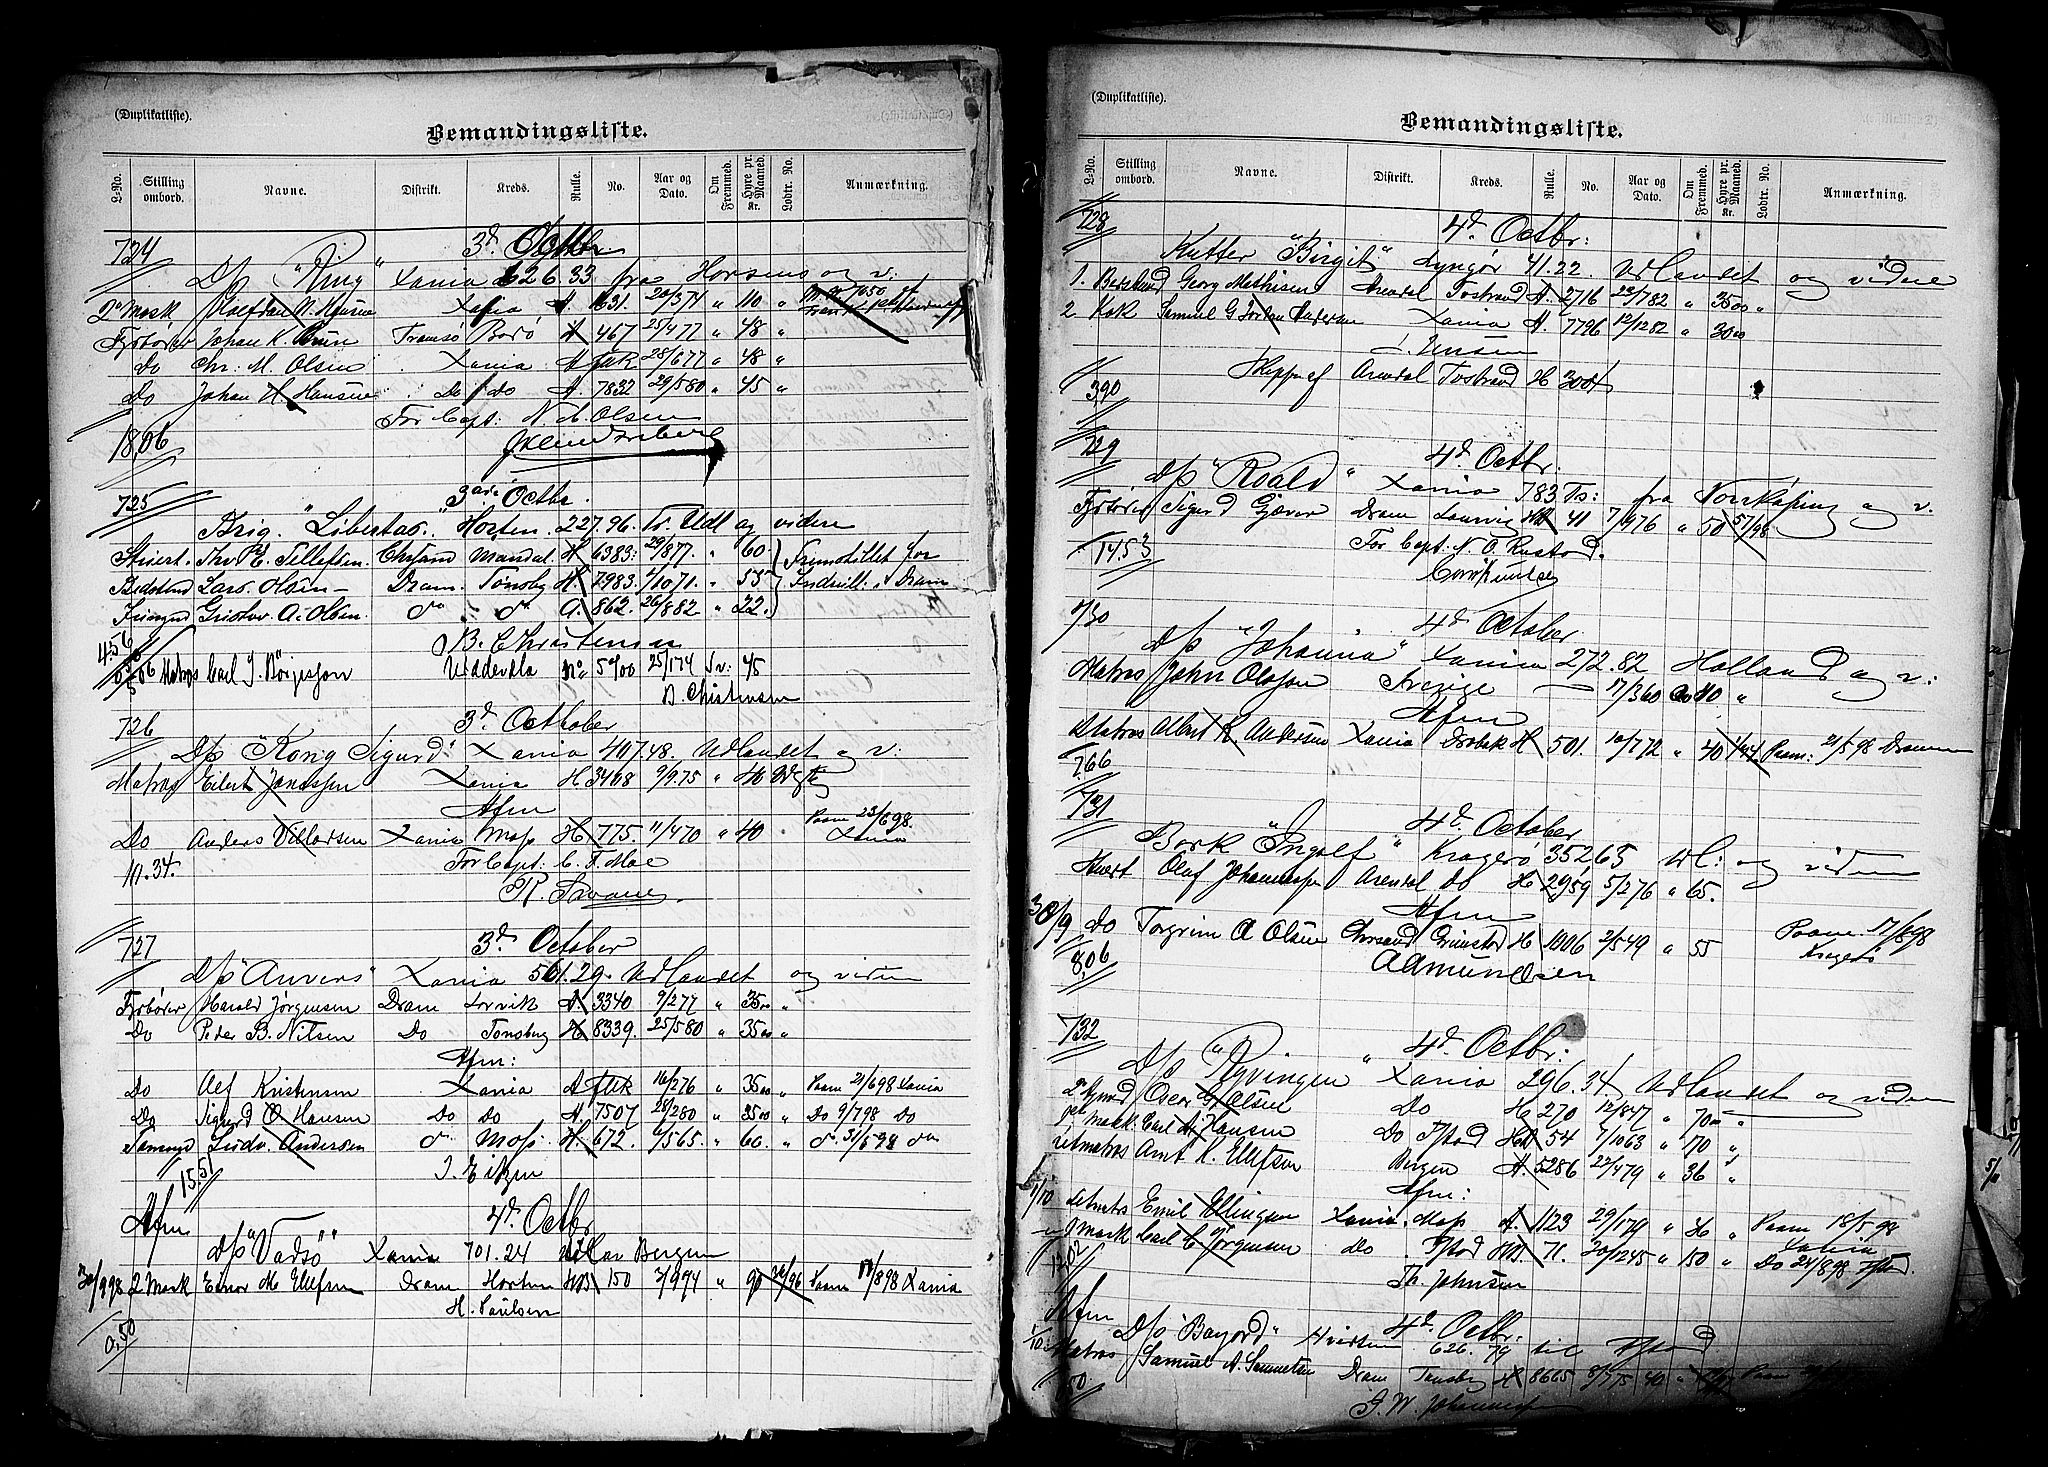 (Duplikatliste).
Bemandingsliste.
L-No. Stilling ombord. Navne. Distrikt. Kreds. Rulle. No. Aar og Dato. Om Fremmed. Hyre pr. Maaned. Kr. Lodtr. No. Anmærkning.
724 3d Octbr.
D/s "Ring" Xania 626.33 fra Horsens og v:
2n Mask Xania A 631 20/374 " 110 "
Fyrbøter Johan K. Tromsø Borø A 467 25/477 " 48 "
Do Chr. M. Olsen Xania A 28/677 " 48 "
Do Johan H. Hansen Do Do A. 7832 29/580 " 45 "
For Capt: N. C. Olsen
18,06
725 3die Octbr.
Brig. "Libertas." Horten. 227.96. Tr. Udl og videre
Stuert. Thv. E. Tellefsen. Chrsand Mandal H. 6383: 29/877. " 60. Frimstillet for
Bedstmd Lars Olsen Dram. Tønsbg H. 2983. 4/1071. " 55 Indrull. i Dram
Jungmd Gustav A. Olsen. do do A. 862. 26/882 " 22.
4.56
B. Christensen
Matros Carl J. Börgesson Uddevala No 5700 25/174 Sv: 45
B. Christensen
726 3d Octtober
D/s "Kong Sigurd" Xania 407.48. Udlandet og v:
Matros Eilert Jonassen Xania H 3468 9/9.75 " 40
Afm
Do Anders Villadsen Xania Moss H 775. 11/470 " 40 " Paam 23/698.
11.34. For Capt: C. F. Moe
R. Svane
727 3d October
D/s "Anvers" Xania 501.29. Udlandet og viden
Fyrbøter Harald Jørgensen Dram Lorvik A 3340 9/277 " 35 00 "
Do Peder B. Nilsen Do Tonsbg H 8339. 25/580 " 35 00 "
Afm:
Do Alf Kristensen Xania A 16/276 " 35 00 " Paam 21/698 Xania
Do Sigurd O Hansen Do Do A. 7507 28/280 " 35 00 " Do 9/798 Do
Ludv. Andersen do Moss. H. 672. 9/565. " 60. " do 31/598 do
15.51 J. Eitzen
Afm 4d. Octbr
D/s "Vadsø" Xania 701.24 Bergen
30/998 2 Mask Einar M. Ellefsen Dram Horten HB 150 3/994 " 90 26/96 Paam 17/898 Xania
H. Paulsen
0.50
(Duplikatliste).
Bemandingsliste.
L-No. Stilling ombord. Navne. Distrikt. Kreds. Rulle. No. Aar og Dato. Om Fremmed. Hyre pr. Maaned. Kr. Lodtr. No. Anmærkning.
728 4d Octbr:
Kutter "Birgit" Lyngör 41.22. Udlandet og videre
1. Bedstmd Georg Mathisen Arendal Tvstrand A. 2716 22/782 " 35 00 "
2 Kok Samuel G. Andersen Xania A. 7796 12/1282 " 30 00
J. Jensen
Skipper af Arendal Tvstrand H 3004
3,90
729 4d. Octbr.
D/s "Roald" Xania 783. Ts: fra Norrköping og v.
Fyrbøter Sigurd Gjæver Dram Laurvig HB 41 7/976 " 50 57/98
14.53 For Capt: N. O. Rustad.
730 4d October
D/s "Johanna" Xania 272.82 Holland og v:
Matros John Olsson Sverige — 17/360 40 "
Afm
Matros Albert R. Andersen Xania Drøbak H 501. 10/772 " 40 Paam: 21/598 Drammen
7.66
731 4d. October
Bark "Ingolf" Kragerø 352.65 Udl: og viden
Stuert Olaf Johannessen Arendal Do H 2959 5/276 " 65.
Afm
30/9 Do Torgrim A Olsen Chrsand Grimstad H 1006 2/549 " 55 Paam 17/898 Kragerø
8,06 Admundsen
732 4d. Octbr:
D/s "Ryvingen" Xania 296.34 Udlandet og viden
Oscar G. Olsen Do H 270 12/847 " 70 00
Mask. Carl A. Hansen Do Fstad HB 54 7/1063 " 70 "
Letmatros Arnt K. Ellefsen Bergen A. 5286 22/479 " 36 "
Afm:
1/10 Letmatros Emil Ellingsen Xania. Moss A. 1123 29/179 " 36 " Paam 18/598 Xania
Mask Carl C. Jørgensen do. Fstad HB 71. 20/1245 " 150 " Do 24/898 Fstad.
12,02 Th. Johnsen
Afm 4d. Octbr:
D/s "Bayard" 626.79 til Fstad
1/10 Matros Samuel A. Dram Tønsbg H 8665 8/775 40 " Paam
.50 J. W. Johannessen